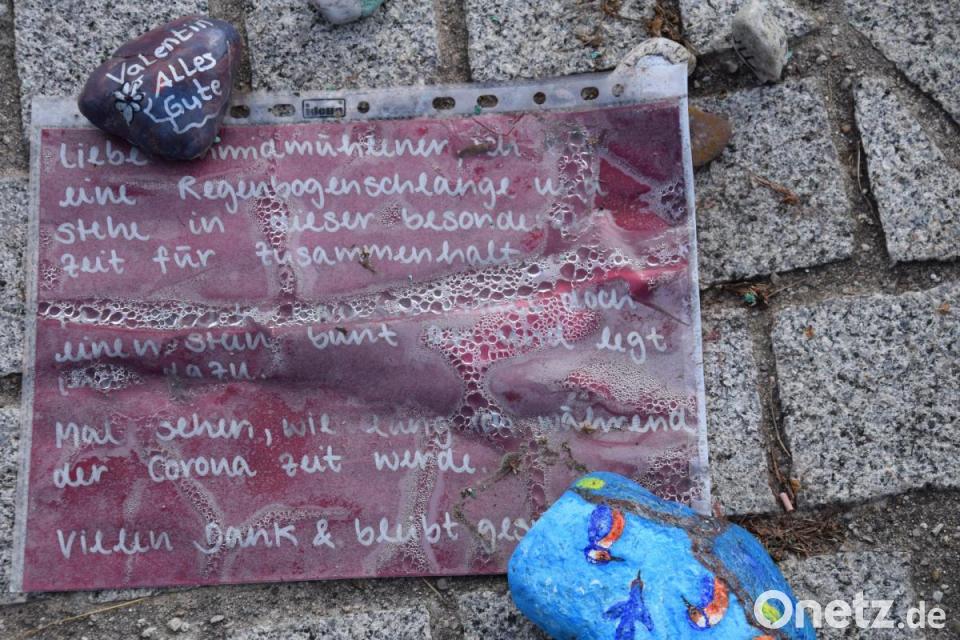 Valentin
Alles
Gute
idena
Liebe
eine Regenbogenschlange und
stehe in dieser besonde
Zeit für Zusammenhalt
doch
einen Stein bunt und legt
dazu.
Mal sehen, wie lang während
der Corona Zeit werde.
Vielen Dank & bleibt ges
Onetz.de